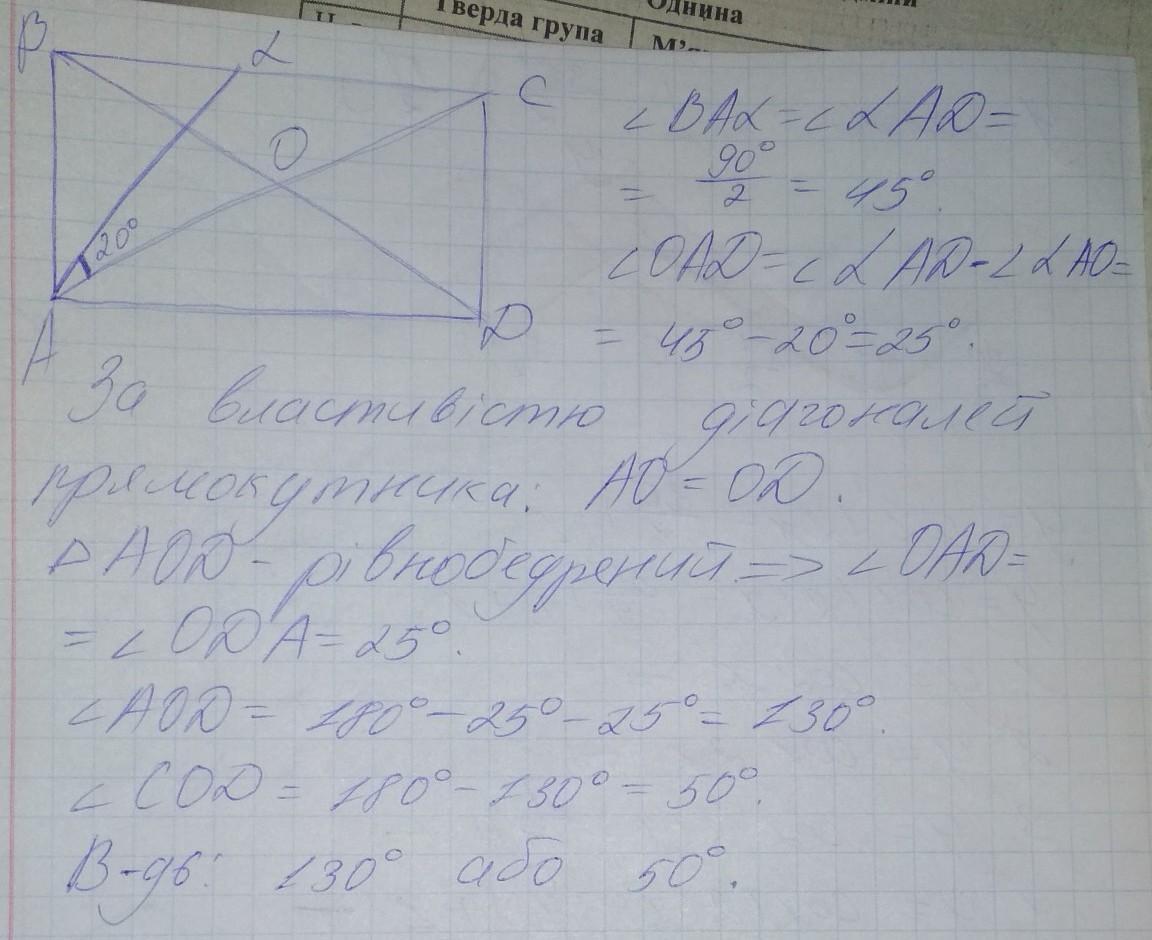 Однина
Тверда група
М'я
B
L
C
O
20°
A
D
∠BAL=∠LAD=
= 90°/2 = 45°.
∠OAD=∠LAD-∠LAO=
= 45°-20°=25°.
За властивістю діагоналей
прямокутника: AO=OD.
△AOD - рівнобедрений => ∠OAD=
=∠ODA=25°.
∠AOD= 180°-25°-25°=130°.
∠COD= 180°-130°=50°.
В-дь: 130° або 50°.